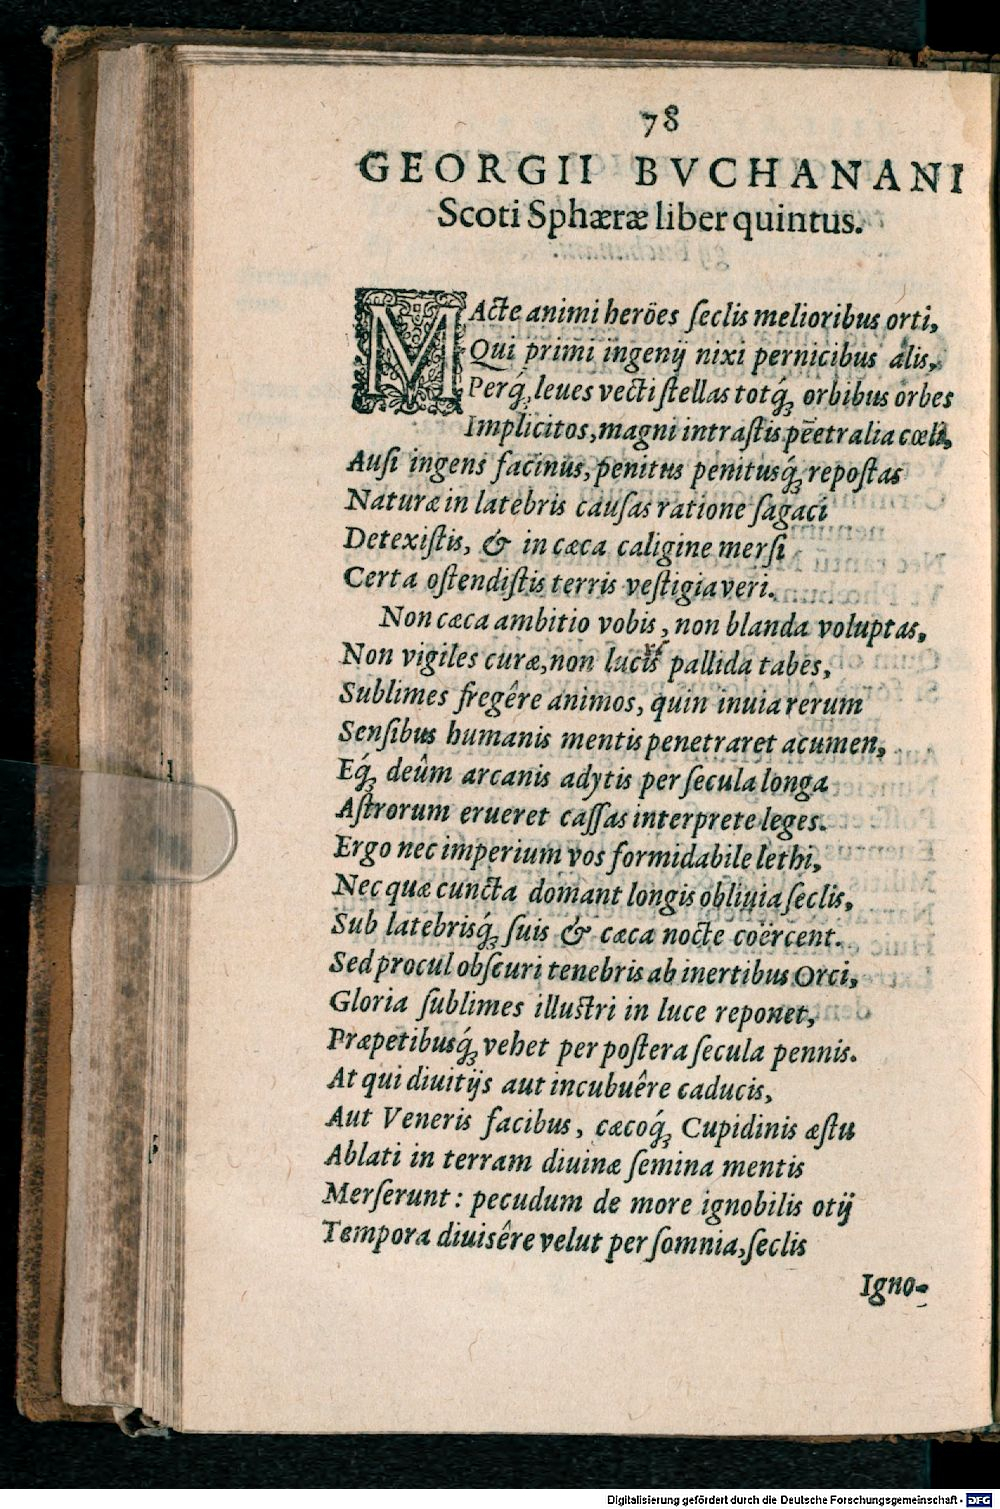 78
GEORGII BVCHANANI
Scoti Sphæræ liber quintus.
MActe animi heröes ſeclis melioribus orti,
Qui primi ingenij nixi pernicibus alis,
Perq́ꝫ leues vecti ſtellas totq́ꝫ orbibus orbes
Implicitos, magni intraſtis pēetralia cœli,
Auſi ingens facinus, penitus penitusq́ꝫ repoſtas
Naturæ in latebris cauſas ratione ſagaci
Detexiſtis, & in cæca caligine merſi
Certa oſtendiſtis terris veſtigia veri.
Non cæca ambitio vobis, non blanda voluptas,
Non vigiles curæ, non lucis pallida tabes,
Sublimes fregêre animos, quin inuia rerum
Senſibus humanis mentis penetraret acumen,
Eq́ꝫ deûm arcanis adytis per ſecula longa
Aſtrorum erueret caſſas interprete leges.
Ergo nec imperium vos formidabile lethi,
Nec quæ cuncta domant longis obliuia ſeclis,
Sub latebrisq́ꝫ ſuis & cæca nocte coërcent.
Sed procul obſcuri tenebris ab inertibus Orci,
Gloria ſublimes illuſtri in luce reponet,
Præpetibusq́ꝫ vehet per poſtera ſecula pennis.
At qui diuitijs aut incubuêre caducis,
Aut Veneris facibus, cæcoq́ꝫ Cupidinis æſtu
Ablati in terram diuinæ ſemina mentis
Merſerunt: pecudum de more ignobilis otij
Tempora diuisêre velut per ſomnia, ſeclis
Igno-
Digitalisierung gefördert durch die Deutsche Forschungsgemeinschaft - DFG